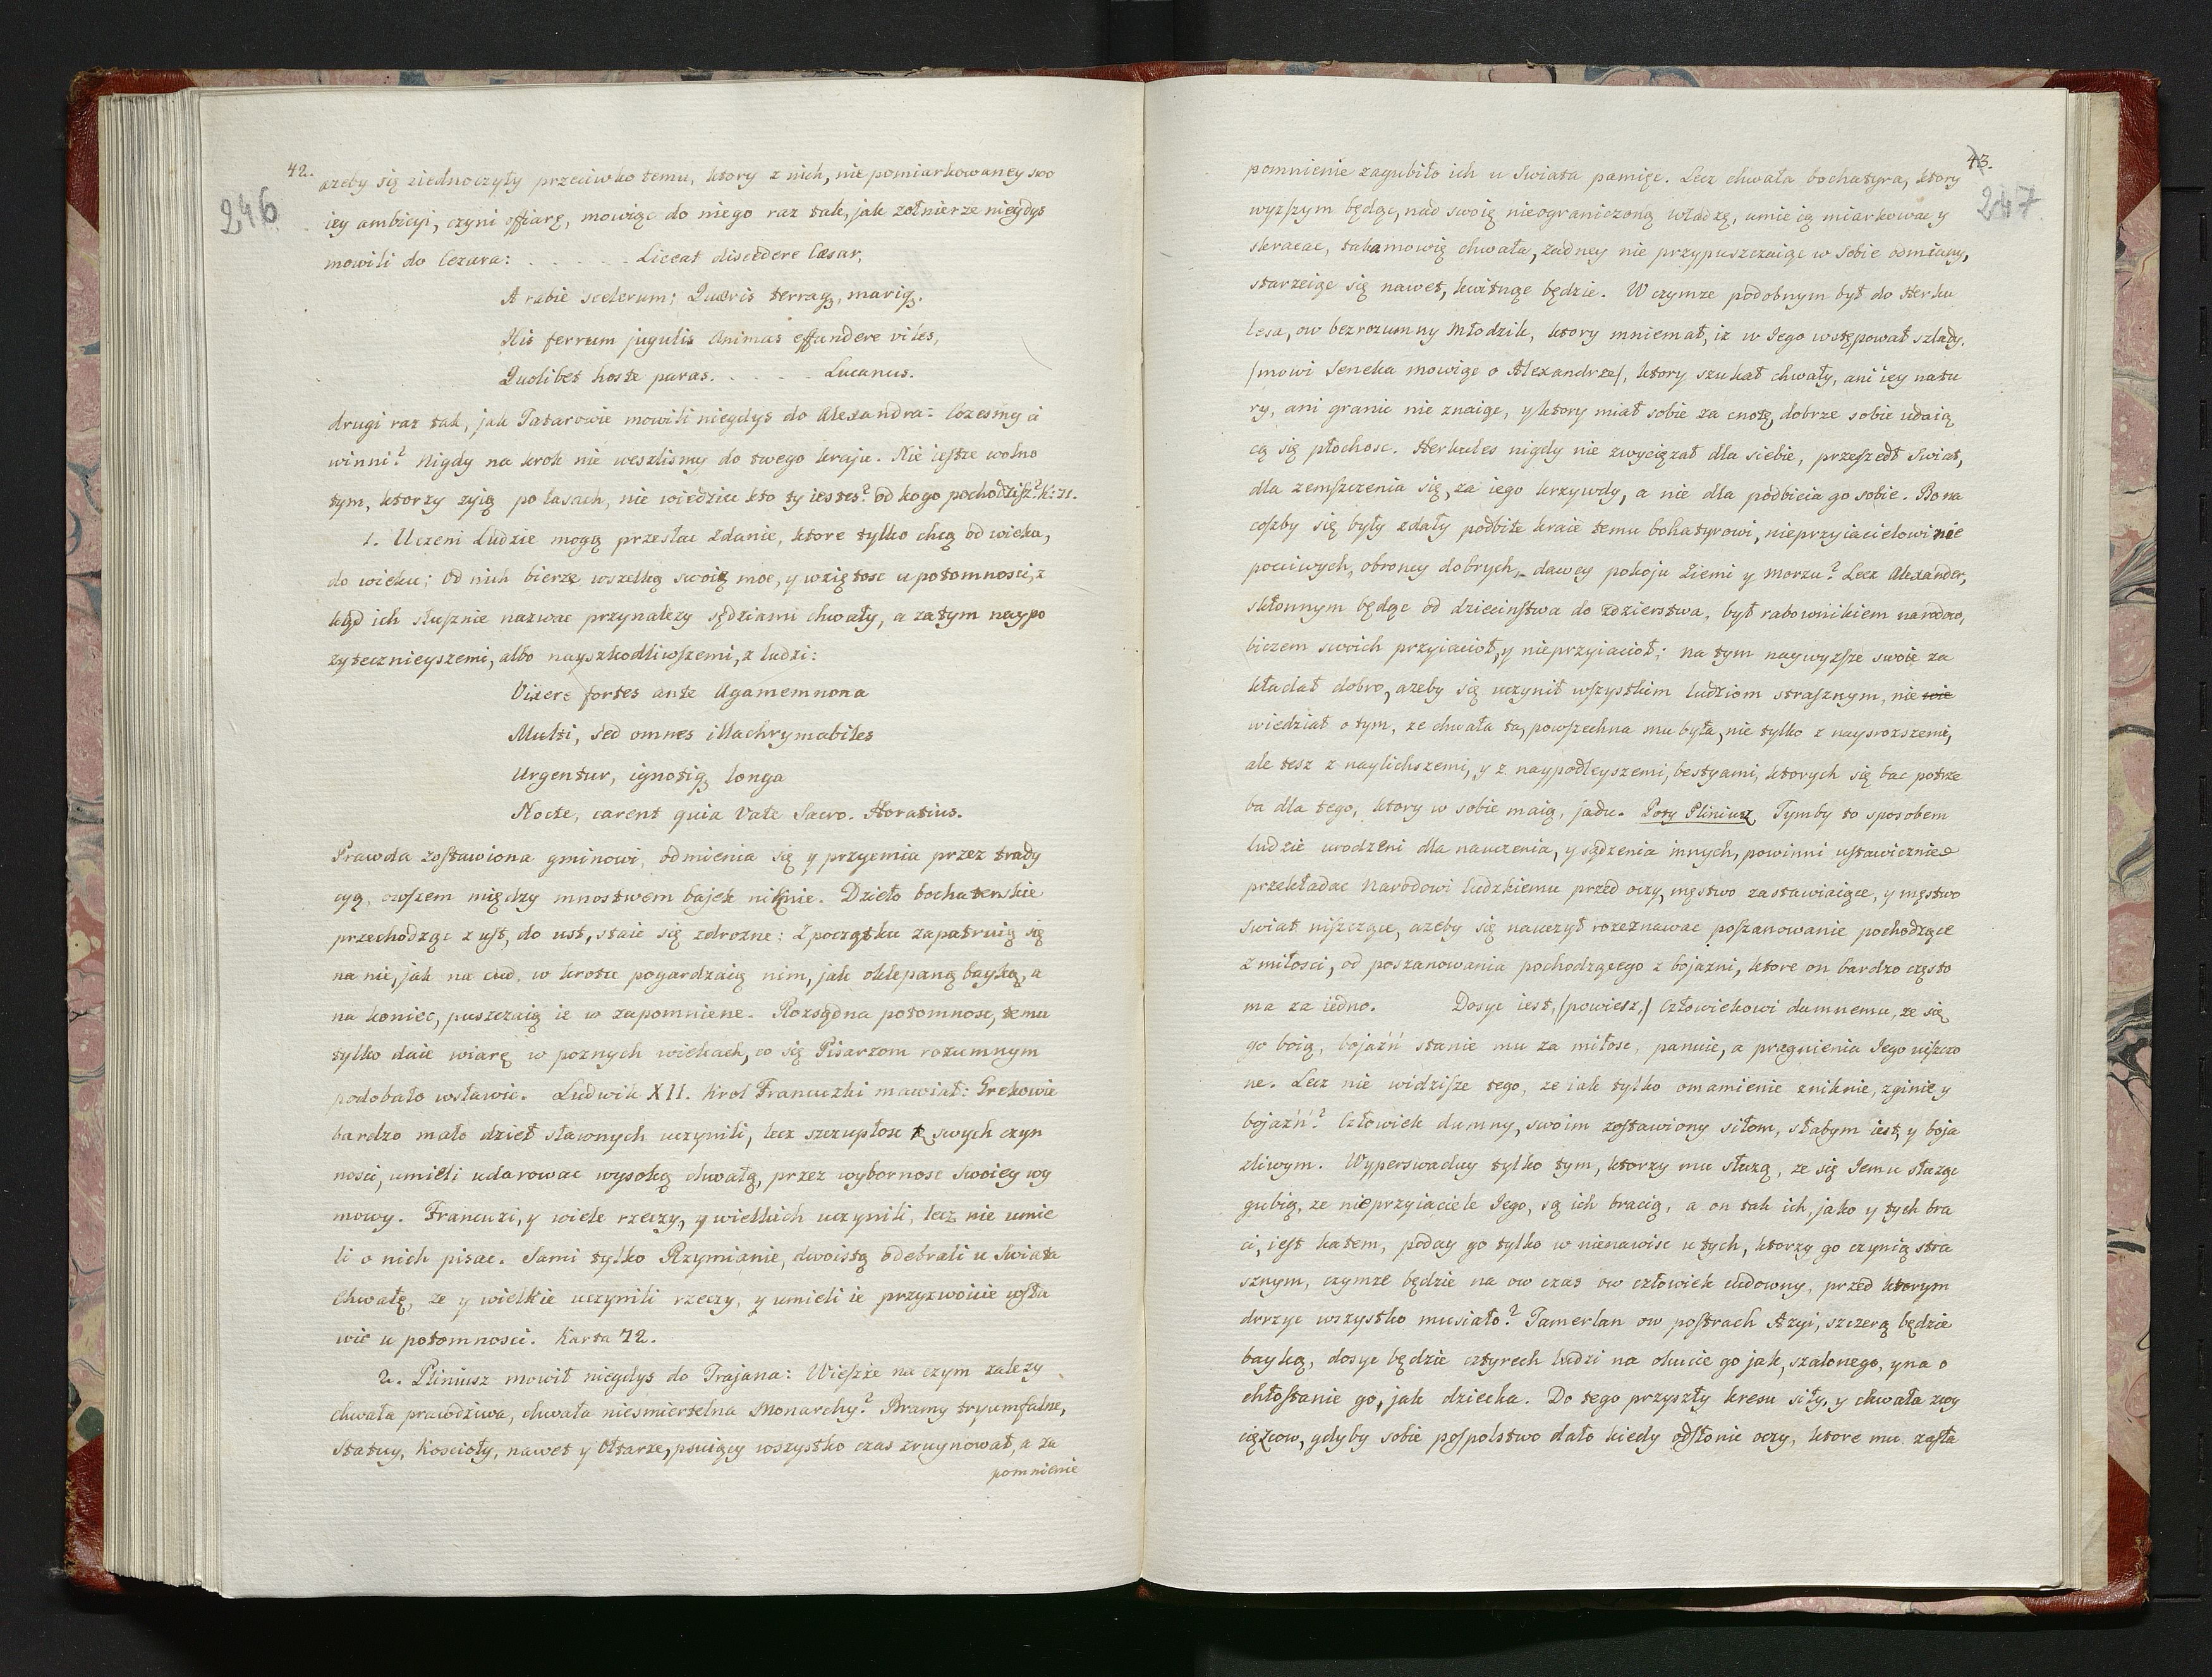 42.
246
azeby się ziednoczyły przeciwko temu, ktory z nich, nie pomiarkowaney swo
iey ambicyi, czyni offiarę, mowiąc do niego raz tak, jak zołnierze niegdys
mowili do Cezara: . . . . . . Liceat discedere Cæsar,
A rabie scelerum; Quæris terraq, mariq.
His ferrum jugulis Animas effundere viles,
Quolibet hoste paras. . . . . Lucanus.
drugi raz tak, jak Tatarowie mowili niegdys do Alexandra: Cozesmy ci
winni? Nigdy na krok nie weszlismy do twego kraju. Nie iestze wolno
tym, ktorzy zyią po lasach, nie wiedzic kto ty iestes? od kogo pochodzisz? K: 71.
1. Uczeni Ludzie mogą przesłac Zdanie, ktore tylko chcą od wieku,
do wieku; od nich bierze wszelką swoię moc, y wziętosc u potomnosci, z
kąd ich słusznie nazwac przynalezy sędziami chwały, a zatym naypo
zytecznieyszemi, albo nayszkodliwszemi, z ludzi:
Vixere fortes ante Agamemnona
Multi, sed omnes illachrymabiles
Urgentur, ignotiq longa
Nocte, carent quia Vate Sacro. Horatius.
Prawda zostawiona gminowi, odmienia się y przyemia przez trady
cyą, owszem między mnostwem bajek niknie. Dzieło bochaterskie
przechodząc z ust, do ust, staie się zdrozne; Zpoczątku zapatruią się
na nie, jak na cud, w krotce pogardzaią nim, jak oklepaną bayką, a
na koniec, puszczaią ie w zapomniene. Rozsądna potomnosc, temu
tylko daie wiarę w poznych wiekach, co się Pisarzom rozumnym
podobało wsławic. Ludwik XII. Krol Francuzki mawiał: Grekowie
bardzo mało dzieł sławnych uczynili, lecz szczupłosc swych czyn
nosci, umieli udarowac wysoką chwałą, przez wybornosc swoiey wy
mowy. Francuzi, y wiele rzeczy, y wielkich uczynili, lecz nie umie
li o nich pisac. Sami tylko Rzymianie, dwoistą odebrali u Swiata
Chwałę, ze y wielkie uczynili rzeczy, y umieli ie przyzwoicie wsła
wic u potomnosci. Karta 72.
2. Pliniusz mowił niegdys do Trajana: Wieszze na czym zalezy
chwała prawdziwa, chwała niesmiertelna Monarchy? Bramy tryumfalne,
statuy, Koscioły, nawet y Ołtarze, psuiący wszystko czas zruynował, a za
pomnienie
43.
247
pomnienie zagubiło ich u Swiata pamięc. Lecz chwała bochatyra, ktory
wyzszym będąc, nad swoię nieograniczoną władzę, umie ią miarkowac y
skracac, taka mowię chwała, zadney nie przypuszczaiąc w sobie odmiany,
starzeiąc się nawet, kwitnąc będzie. W czymze podobnym był do Herku
lesa, ow bezrozumny Młodzik, ktory mniemał, iz w Jego wstępował szlady.
/mowi Seneka mowiąc o Alexandrze/, ktory szukał chwały, ani iey natu
ry, ani granic nie znaiąc, y ktory miał sobie za cnotę, dobrze sobie udaią
cą się płochosc. Herkules nigdy nie zwyciązał dla siebie, przeszedł Swiat,
dla zemszczenia się, za iego krzywdy, a nie dla podbicia go sobie. Bo na
coszby się były zdały podbite kraie temu bohatyrowi, nieprzyiacielowi nie
poczciwych, obroncy dobrych, dawcy pokoju Ziemi y morzu? Lecz Alexander,
skłonnym będąc od dziecinstwa do zdzierstwa, był rabownikiem narodow,
biczem swoich przyiacioł, y nieprzyiacioł; na tym naywyzsze swoie za
kładał dobro, azeby się uczynił wszystkim ludziom strasznym, nie wie
wiedział o tym, ze chwała ta, powszechna mu była, nie tylko z naysrozszemi,
ale tesz z naylichszemi, y z naypodleyszemi, bestyami, ktorych się bac potrze
ba dla tego, ktory w sobie maią, jadu. Poty Pliniusz Tymby to sposobem
ludzie urodzeni dla nauczenia, y sądzenia innych, powinni ustawicznie
przekładac Narodowi ludzkiemu przed oczy, męstwo zastawiaiące, y męstwo
swiat niszczące, azeby się nauczył rozeznawac poszanowanie pochodzące
z miłosci, od poszanowania pochodzącego z bojazni, ktore on bardzo często
ma za iedno. Dosyc iest, /powiesz,/ Człowiekowi dumnemu, ze się
go boią, bojaźń stanie mu za miłosc, panuie, a pragnienia Jego uiszczo
ne. Lecz nie widzisze tego, ze iak tylko omamienie zniknie, zginie y
bojaźń? Człowiek dumny, swoim zostawiony siłom, słabym iest, y boja
zliwym. Wyperswaduy tylko tym, ktorzy mu służą, ze się Jemu służąc
gubią, ze nieprzyiaciele Jego, są ich bracią, a on tak ich, jako y tych bra
ci, iest katem, poday go tylko w nienawisc u tych, ktorzy go czynią stra
sznym, czymze będzie na ow czas ow człowiek cudowny, przed ktorym
drzyc wszystko musiało? Tamerlan ow postrach Azyi, szczerą będzie
bayką, dosyc będzie cztyrech ludzi na okucie go jak, szalonego, y na o
chłostanie go, jak dziecka. Do tego przyszły kresu siły, y chwała zwy
cięzcow, gdyby sobie pospolstwo dało kiedy odsłonic oczy, ktore mu zasła